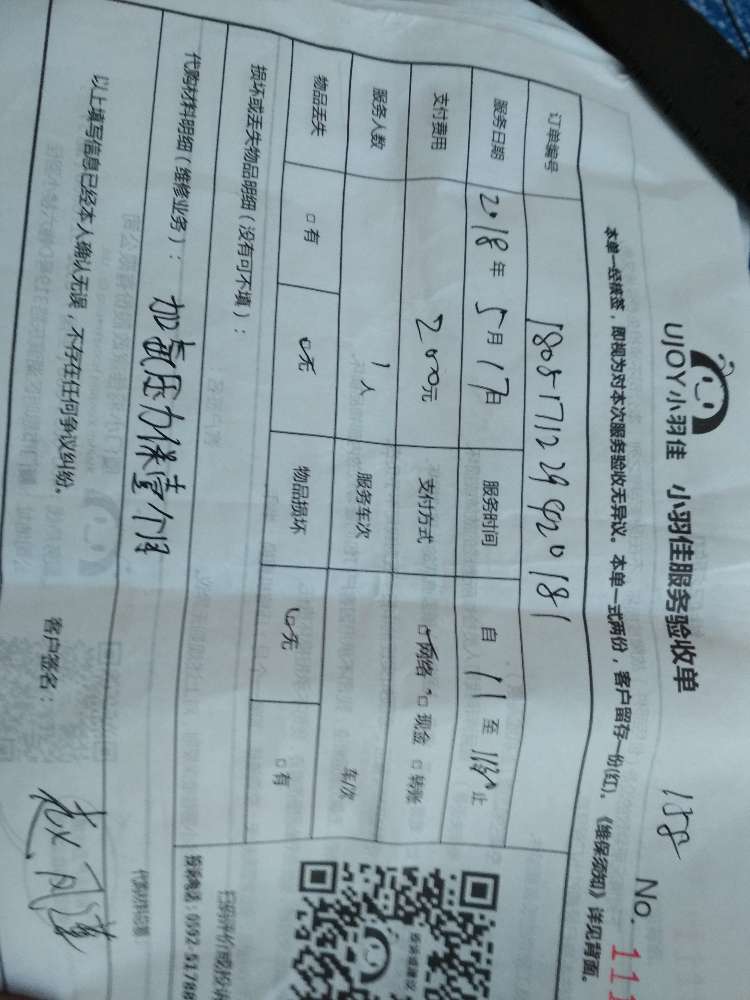 UJOY小羽佳 小羽佳服务验收单
158
No. 111
本单一经核签，即视为对本次服务验收无异议。本单一式两份，客户留存一份(红)。《维保须知》详见背面。
订单编号
服务日期 2018年5月17日 服务时间 自 11 至 1130 止
支付费用 200元 支付方式 网络 现金 转账
服务人数 1人 服务车次 车/次
物品丢失 有 无 物品损坏 无 有
损坏或丢失物品明细（没有可不填）：
代购材料明细（维修业务）： 加氟压力保壹个月
以上填写信息已经本人确认无误，不存在任何争议纠纷。 客户签名：
投诉电话：0592-51788